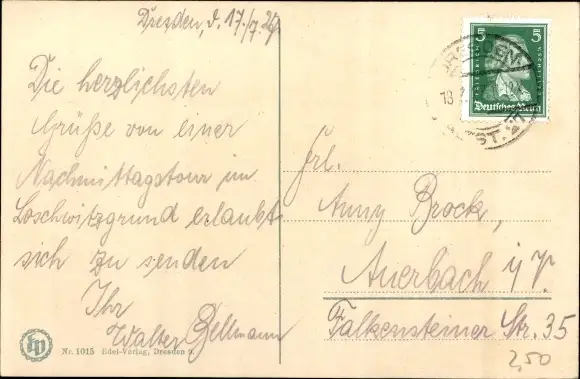 Dresden, d. 17/7.26
Die herzlichsten
Grüße von einer
Nachmittagstour im
Loschwitzgrund erlaubt
sich zu senden
Ihr
Walter Bellmann
Nr. 1015 Edel-Verlag, Dresden
5 5
Deutsches Reich
DRESDEN
18
Frl.
Anny Brock,
Auerbach i/V.
Falkensteiner Str. 35
2,50